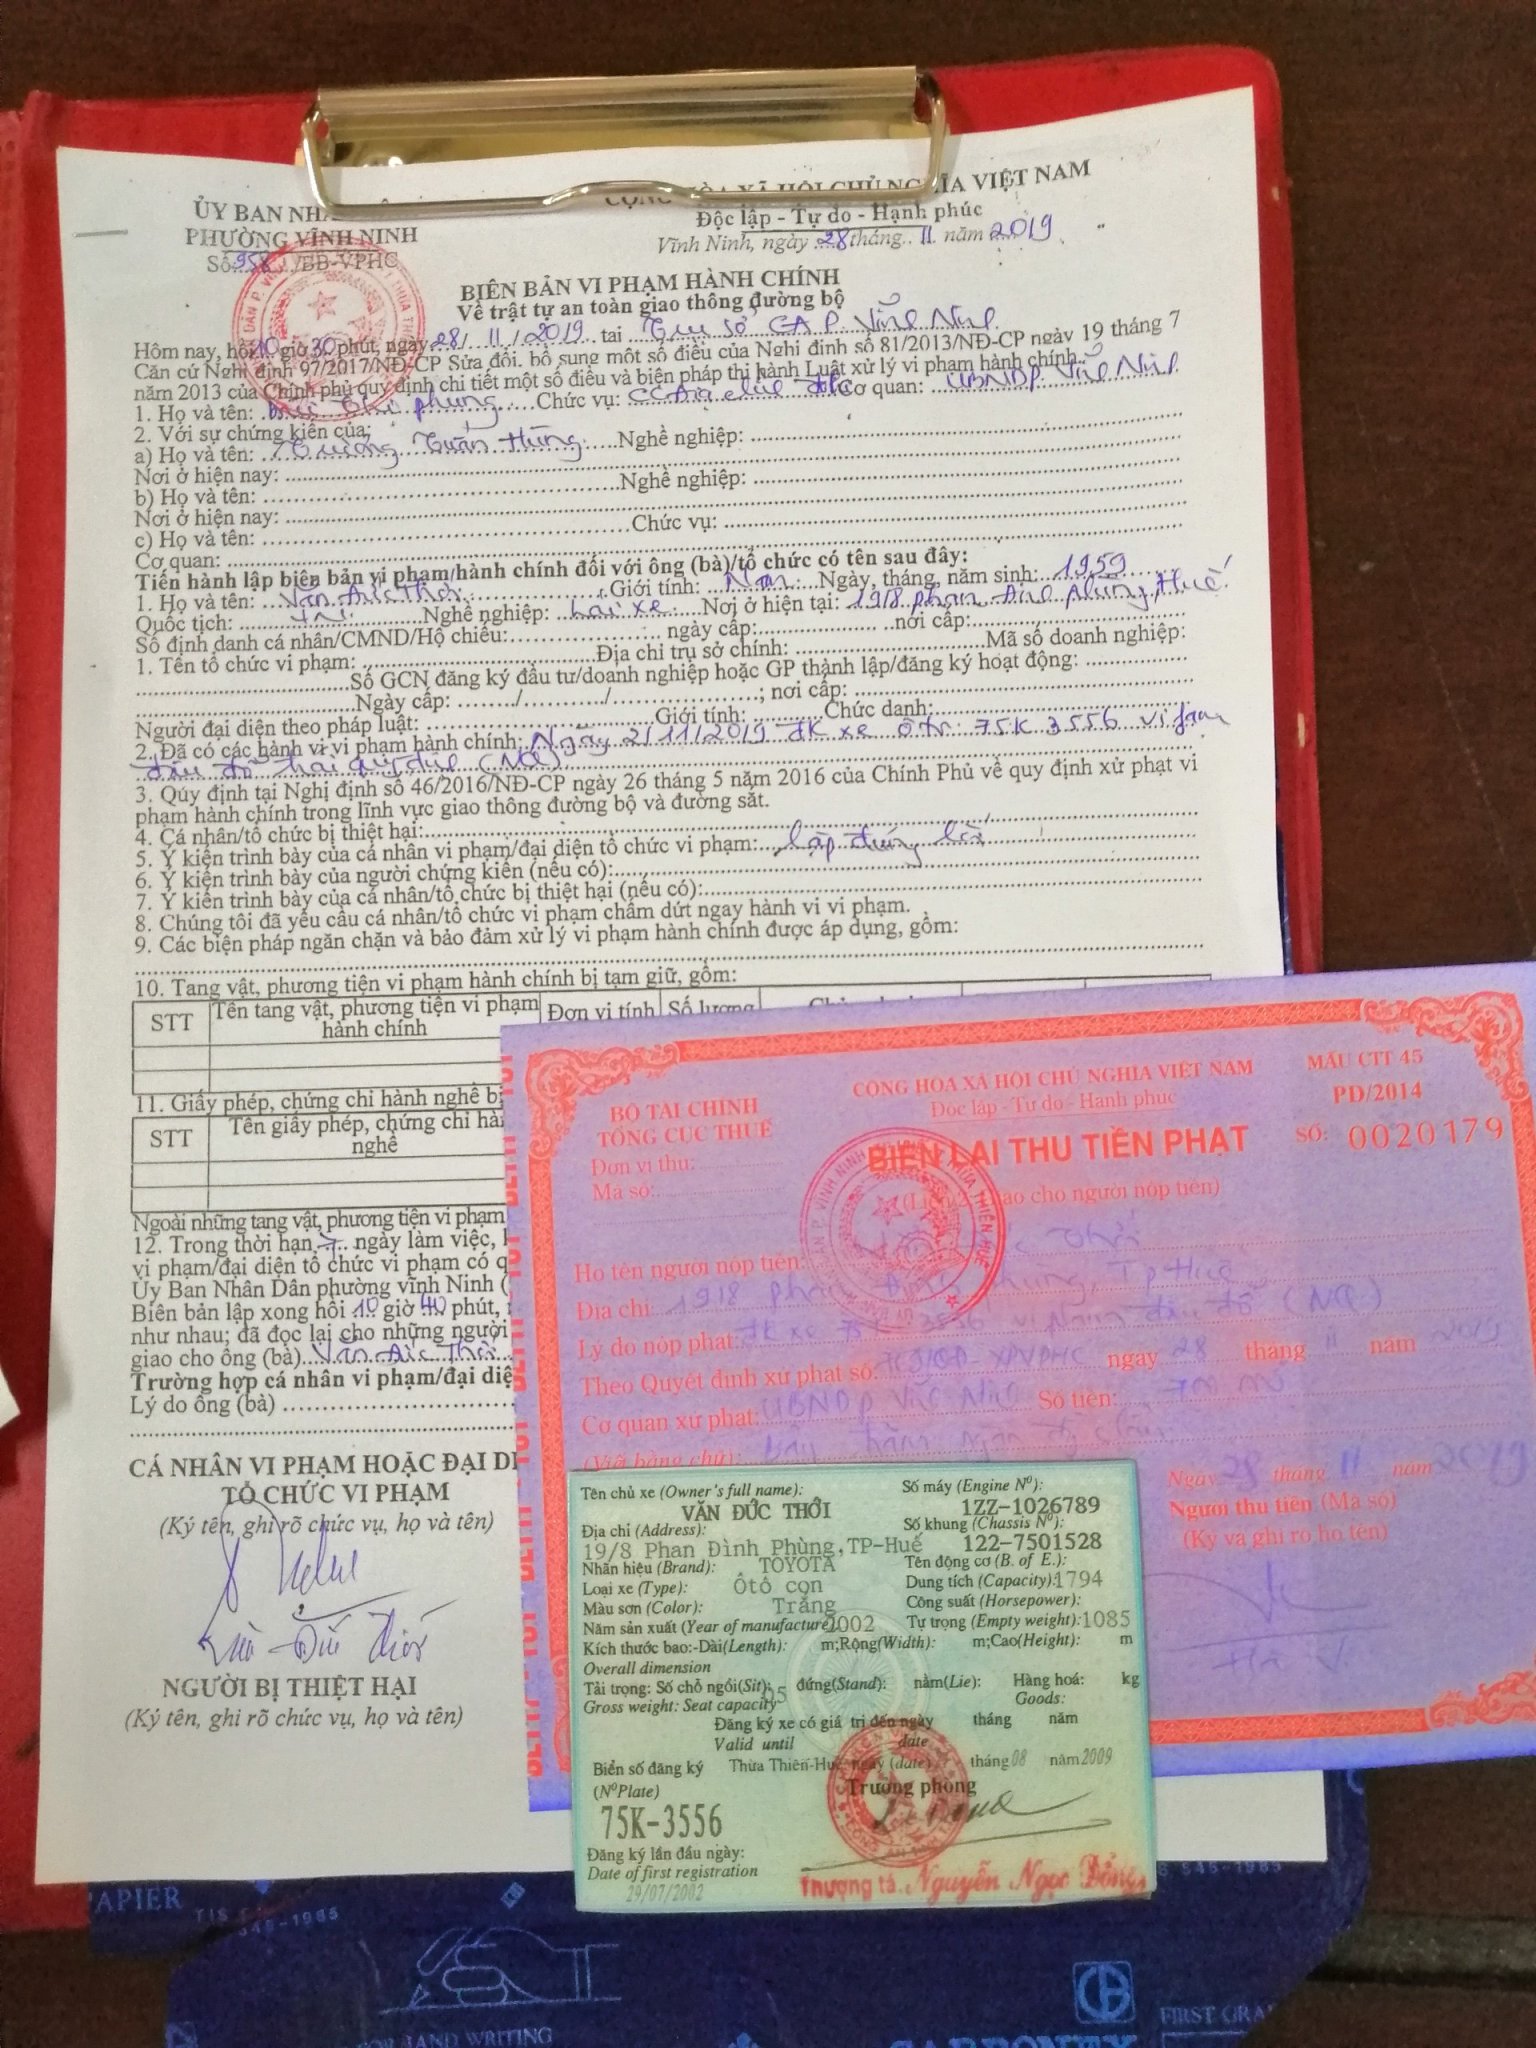 ỦY BAN NHÂ
CỘNG HÒA XÃ HỘI CHỦ NGHĨA VIỆT NAM
PHƯỜNG VĨNH NINH
Độc lập - Tự do - Hạnh phúc
Số 958 /BB-VPHC
Vĩnh Ninh, ngày 28 tháng 11 năm 2019
BIÊN BẢN VI PHẠM HÀNH CHÍNH
Về trật tự an toàn giao thông đường bộ
Hôm nay, hồi 10 giờ 30 phút, ngày 28/11/2019 tại Trụ sở CA P. Vĩnh Ninh
Căn cứ Nghị định 97/2017/NĐ-CP Sửa đổi, bổ sung một số điều của Nghị định số 81/2013/NĐ-CP ngày 19 tháng 7
năm 2013 của Chính phủ quy định chi tiết một số điều và biện pháp thi hành Luật xử lý vi phạm hành chính.
1. Họ và tên: Phụng Chức vụ: Cơ quan: UBNDP. Vĩnh Ninh
2. Với sự chứng kiến của:
a) Họ và tên: Trương Tuấn Hùng Nghề nghiệp:
Nơi ở hiện nay:
b) Họ và tên: Nghề nghiệp:
Nơi ở hiện nay:
c) Họ và tên: Chức vụ:
Cơ quan:
Tiến hành lập biên bản vi phạm/hành chính đối với ông (bà)/tổ chức có tên sau đây:
1. Họ và tên: Văn Đức Thới Giới tính: Nam Ngày, tháng, năm sinh: 1959
Quốc tịch: VN Nghề nghiệp: Lái xe Nơi ở hiện tại: 19/8 Phan Đình Phùng, Huế
Số định danh cá nhân/CMND/Hộ chiếu: ngày cấp: nơi cấp:
1. Tên tổ chức vi phạm: Địa chỉ trụ sở chính: Mã số doanh nghiệp:
Số GCN đăng ký đầu tư/doanh nghiệp hoặc GP thành lập/đăng ký hoạt động:
Ngày cấp: / / ; nơi cấp:
Người đại diện theo pháp luật: Giới tính: Chức danh:
2. Đã có các hành vi vi phạm hành chính: Ngày 2/11/2019 ĐK xe ôtô: 75K 3556 vi phạm
đậu đỗ
3. Qúy định tại Nghị định số 46/2016/NĐ-CP ngày 26 tháng 5 năm 2016 của Chính Phủ về quy định xử phạt vi
phạm hành chính trong lĩnh vực giao thông đường bộ và đường sắt.
4. Cá nhân/tổ chức bị thiệt hại:
5. Ý kiến trình bày của cá nhân vi phạm/đại diện tổ chức vi phạm: lập đúng lỗi
6. Ý kiến trình bày của người chứng kiến (nếu có):
7. Ý kiến trình bày của cá nhân/tổ chức bị thiệt hại (nếu có):
8. Chúng tôi đã yêu cầu cá nhân/tổ chức vi phạm chấm dứt ngay hành vi vi phạm.
9. Các biện pháp ngăn chặn và bảo đảm xử lý vi phạm hành chính được áp dụng, gồm:
10. Tang vật, phương tiện vi phạm hành chính bị tạm giữ, gồm:
STT Tên tang vật, phương tiện vi phạm hành chính Đơn vị tính Số lượng
11. Giấy phép, chứng chỉ hành nghề bị
STT Tên giấy phép, chứng chỉ hàn
nghề
Ngoài những tang vật, phương tiện vi phạm
12. Trong thời hạn 7 ngày làm việc, k
vi phạm/đại diện tổ chức vi phạm có q
Ủy Ban Nhân Dân phường vĩnh Ninh (
Biên bản lập xong hồi 10 giờ 40 phút,
như nhau; đã đọc lại cho những người
giao cho ông (bà) Văn Đức Thới
Trường hợp cá nhân vi phạm/đại diệ
Lý do ông (bà)
CÁ NHÂN VI PHẠM HOẶC ĐẠI DI
TỔ CHỨC VI PHẠM
(Ký tên, ghi rõ chức vụ, họ và tên)
Văn Đức Thới
NGƯỜI BỊ THIỆT HẠI
(Ký tên, ghi rõ chức vụ, họ và tên)
BỘ TÀI CHÍNH
TỔNG CỤC THUẾ
CỘNG HÒA XÃ HỘI CHỦ NGHĨA VIỆT NAM
Độc lập - Tự do - Hạnh phúc
MẪU CTT 45
PD/2014
Đơn vị thu:
Mã số:
BIÊN LAI THU TIỀN PHẠT
SỐ: 0020179
giao cho người nộp tiền)
Họ tên người nộp tiền: Đức Thới
Địa chỉ: 19/8 Phan Đình Phùng, Tp Huế
Lý do nộp phạt: ĐK xe 75K-3556 vi phạm đậu đỗ
Theo Quyết định xử phạt số: QĐ-XPVPHC ngày 28 tháng 11 năm 2019
Cơ quan xử phạt: UBNDP Vĩnh Ninh Số tiền:
(Viết bằng chữ): Bảy trăm ngàn đ chẵn
Ngày 28 tháng 11 năm 2019
Người thu tiền (Mã số)
(Ký và ghi rõ họ tên)
Tên chủ xe (Owner's full name):
VĂN ĐỨC THỚI
Số máy (Engine Nº):
1ZZ-1026789
Địa chỉ (Address):
19/8 Phan Đình Phùng,TP-Huế
Số khung (Chassis Nº):
122-7501528
Nhãn hiệu (Brand): TOYOTA
Tên động cơ (B. of E.):
Loại xe (Type): Ôtô con
Dung tích (Capacity): 1794
Màu sơn (Color): Trắng
Công suất (Horsepower):
Năm sản xuất (Year of manufacture) 2002
Tự trọng (Empty weight): 1085
Kích thước bao:-Dài(Length): m;Rộng(Width): m;Cao(Height): m
Overall dimension
Tải trọng: Số chỗ ngồi(Sit): 05 đứng(Stand): nằm(Lie): Hàng hoá: kg
Gross weight: Seat capacity Goods:
Đăng ký xe có giá trị đến ngày tháng năm
Valid until date
Biển số đăng ký
(NºPlate)
75K-3556
Thừa Thiên-Huế ngày (date) tháng 08 năm 2009
Trưởng phòng
Đăng ký lần đầu ngày:
Date of first registration
29/07/2002
Thượng tá. Nguyễn Ngọc Đổng
PAPIER
FIRST GRA
HAND WRITING